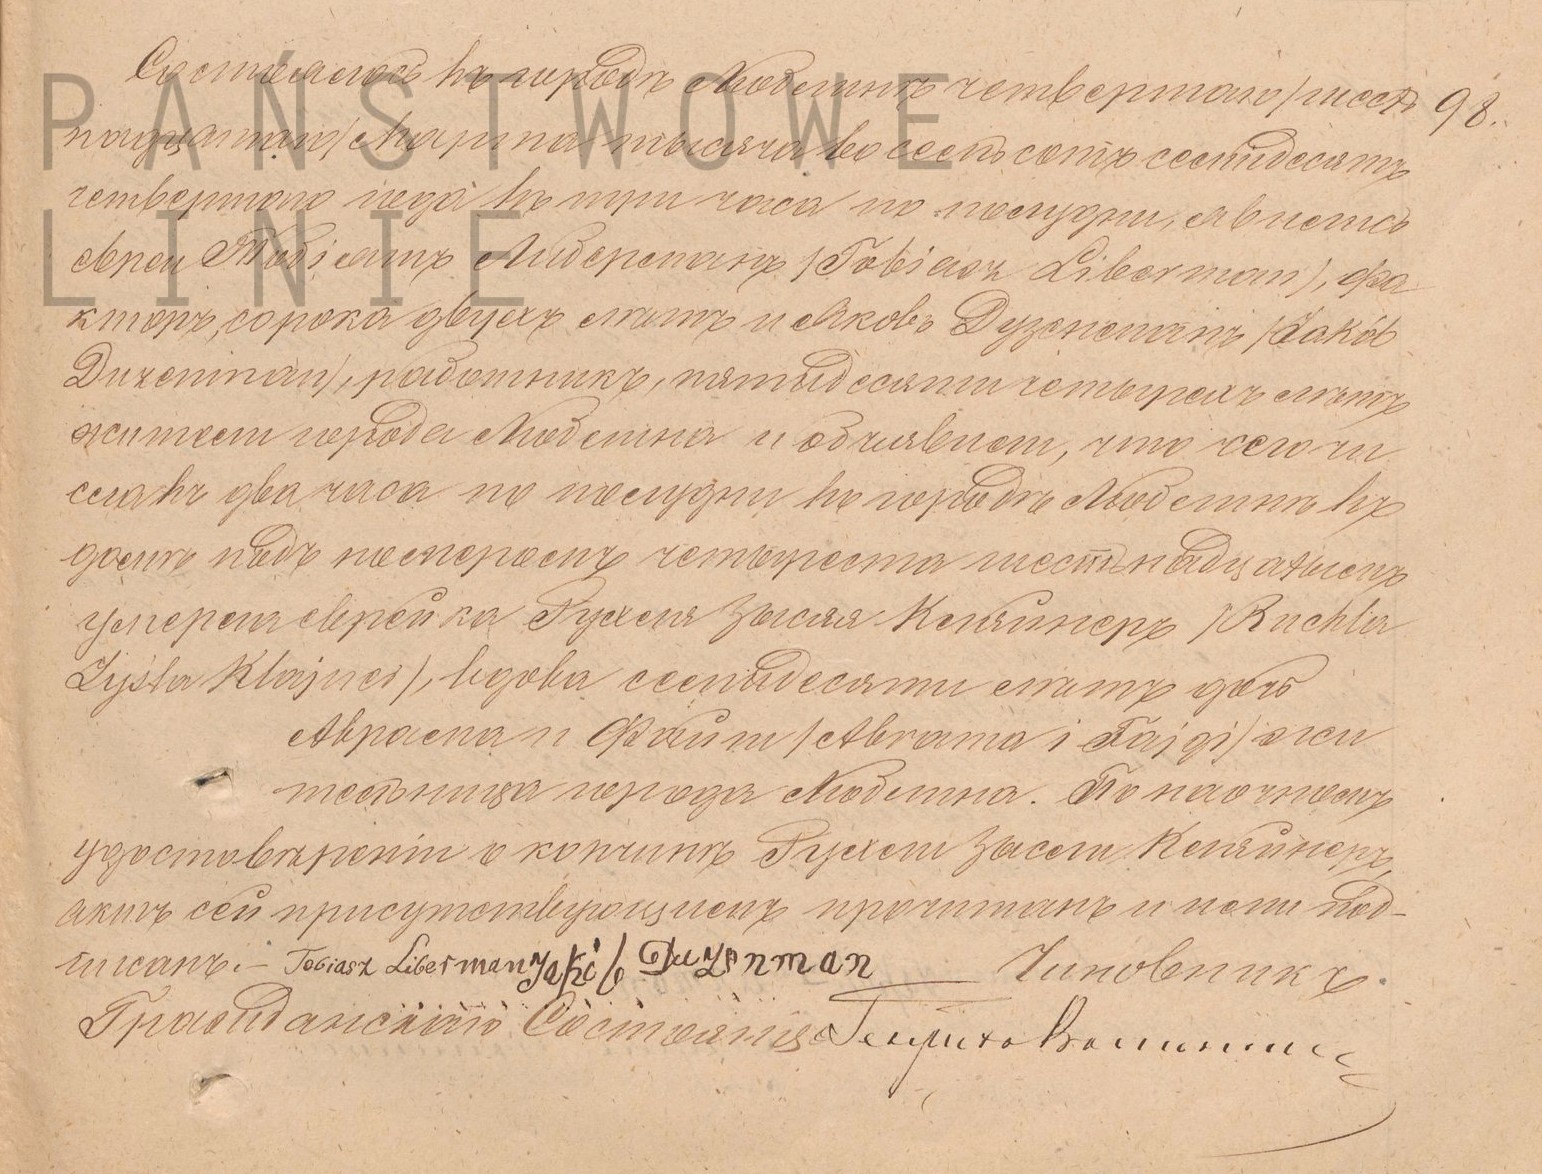 PAŃSTWOWE
LINIE
Состоялось въ городѣ Люблинѣ четвертаго /шест 98.
надцатаго/ Марта тысяча восемь сотъ семидесятъ
четвертаго года въ три часа по полудни, явились
евреи Тобіяшъ Либерманъ /Tobiasz Liberman/, фа
кторъ, сорока двухъ лѣтъ и Яковъ Дузенманъ /Jakób
Duzenman/, работникъ, пятьдесяти четырехъ лѣтъ
жители города Люблина и объявили, что сего чи
сла въ два часа по полудни въ городѣ Люблинѣ въ
домѣ подъ номеромъ четыреста шестьнадцатымъ
умерла еврейка Рухля Зысля Кляйнеръ /Ruchla
Zysla Klajner/, вдова семьдесяти лѣтъ дочь
Абрама и Файги /Abrama i Fajgi/ жи
тельница города Люблина. По наочномъ
удостовѣреніи о кончинѣ Рухли Зысли Кляйнеръ,
актъ сей присутствующимъ прочитанъ и нами под-
писанъ. – Tobiasz Liberman Jakób Duzenman Чиновникъ
Гражданскаго Состоянія